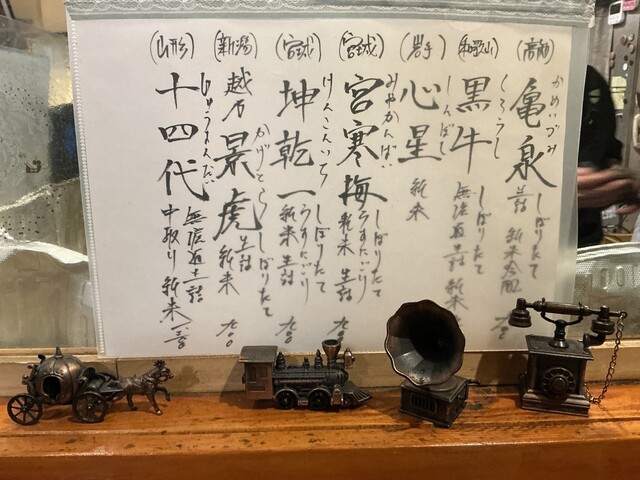 (高知)
かめいづみ
亀泉
しぼりたて
生詰 新米
(和歌山)
くろうし
黒牛
しぼりたて
無濾過生詰 新米
(岩手)
しんぼし
心星
新米
(宮城)
みやかんばい
宮寒梅
しぼりたて
うすにごり
新米 生詰
(宮城)
けんこんいち
坤乾一
しぼりたて
うすにごり
新米 生詰
九〇〇
(新潟)
かげとら
越乃景虎
しぼりたて
生詰 新米
九〇〇
(山形)
じゅうよんだい
十四代
無濾過生詰
中取り 新米